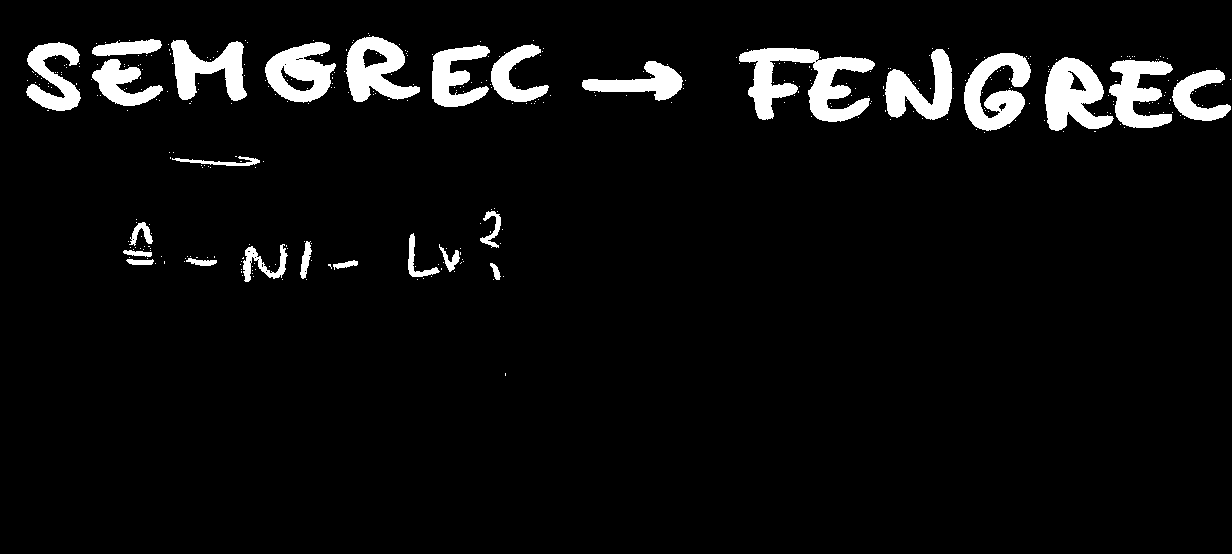 SEMGREC → FENGREC
≙ - NI - Lv?